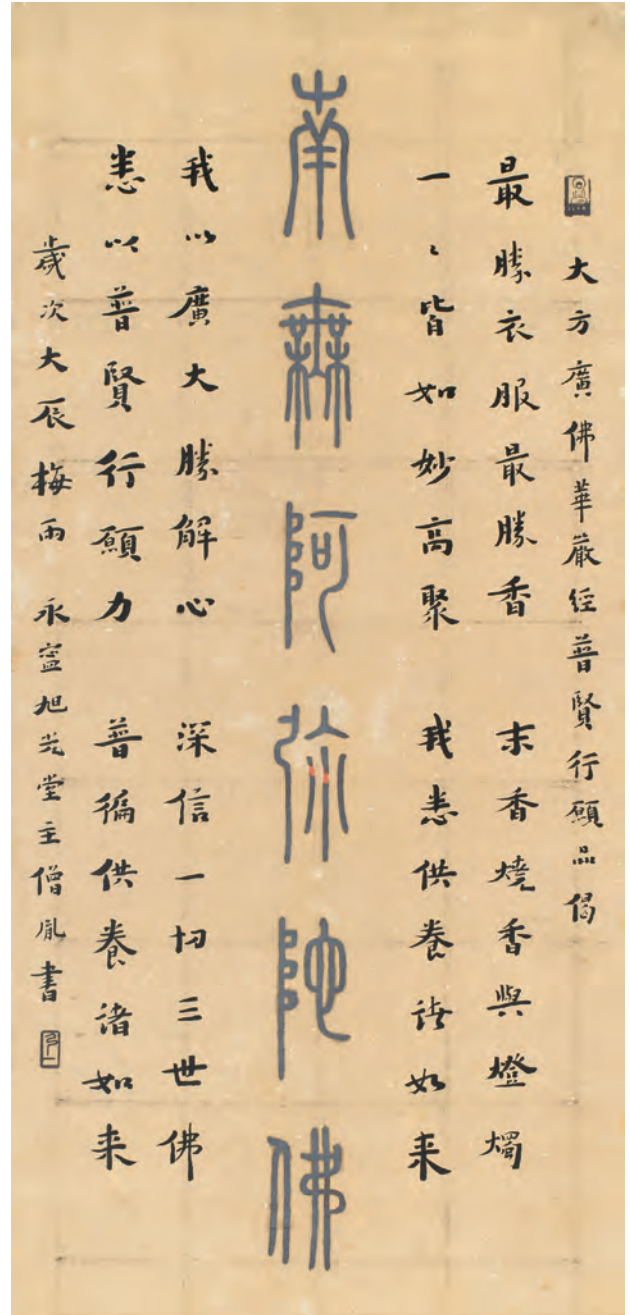 大方廣佛華嚴經普賢行願品偈
最勝衣服最勝香 末香燒香與燈燭
一〻皆如妙高聚 我悉供養諸如来
南無阿弥陀佛
我以廣大勝解心 深信一切三世佛
悉以普賢行願力 普徧供養諸如来
歲次大辰梅雨 永寧旭光堂主僧胤書